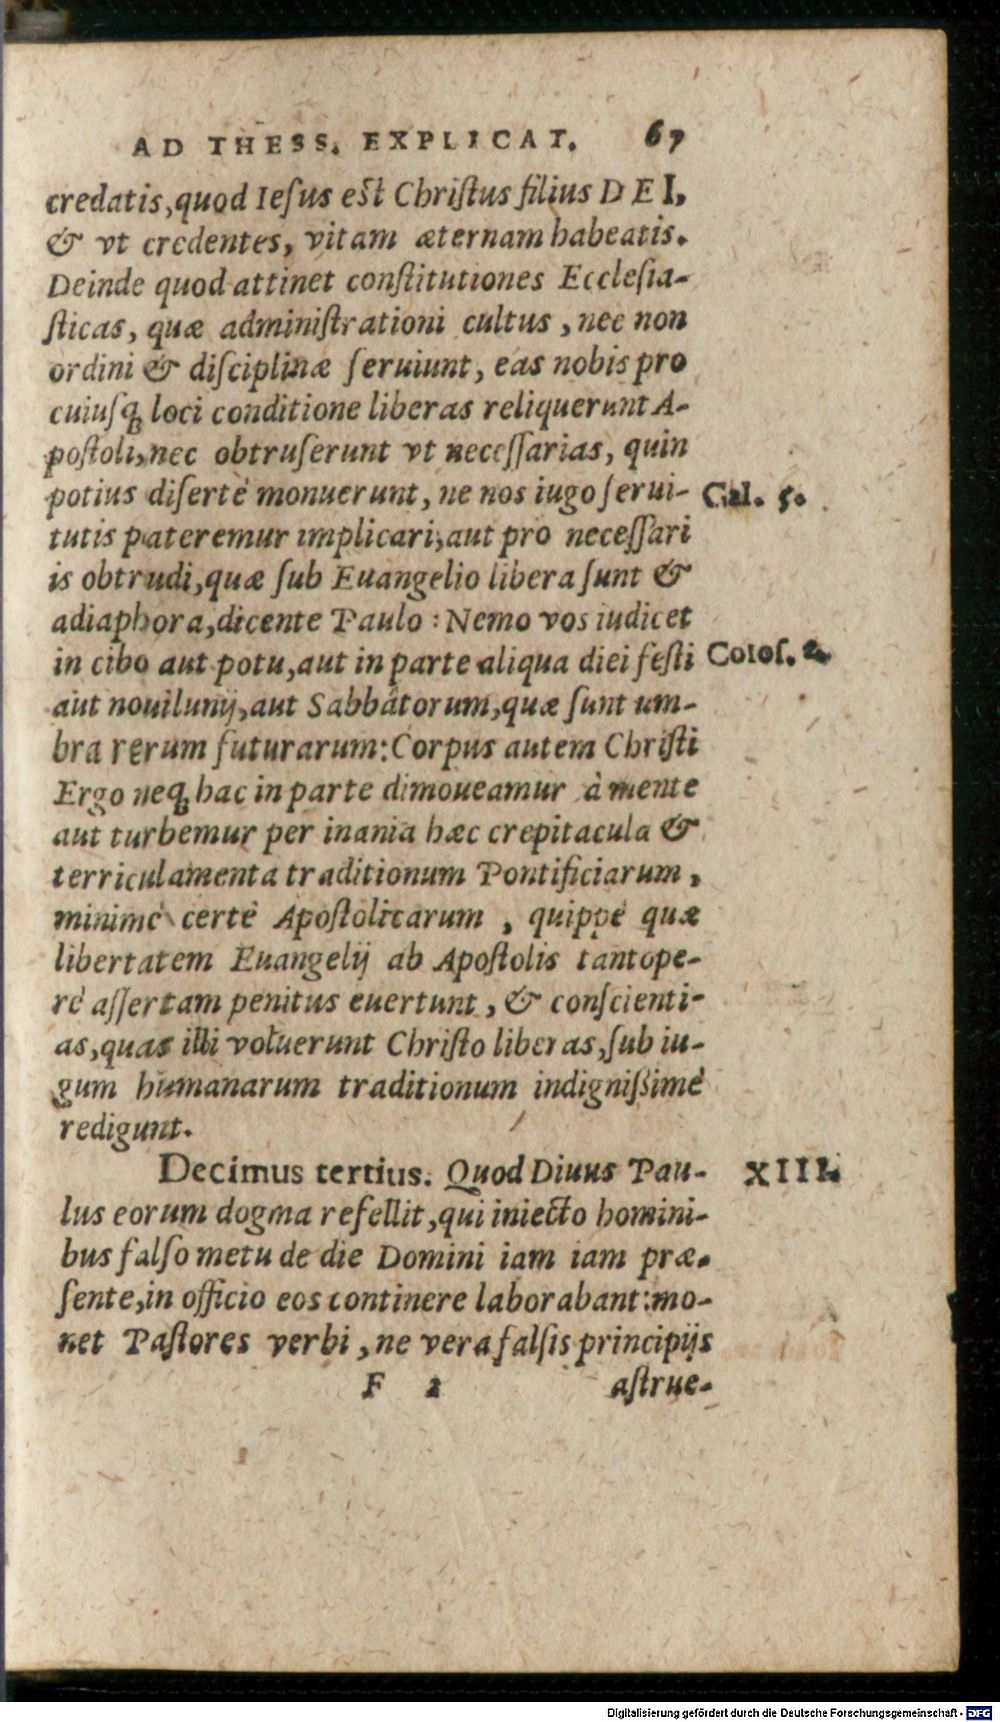 AD THESS. EXPLICAT. 67
credatis, quod Iesus est Christus filius DEI,
& vt credentes, vitam æternam habeatis.
Deinde quod attinet constitutiones Ecclesia-
sticas, quæ administrationi cultus, nec non
ordini & disciplinæ seruiunt, eas nobis pro
cuiusq; loci conditione liberas reliquerunt A-
postoli, nec obtruserunt vt necessarias, quin
potius disertè monuerunt, ne nos iugo serui-
Gal. 5.
tutis pateremur implicari, aut pro necessari
is obtrudi, quæ sub Euangelio libera sunt &
adiaphora, dicente Paulo: Nemo vos iudicet
in cibo aut potu, aut in parte aliqua diei festi
Colos. 2.
aut nouilunij, aut Sabbâtorum, quæ sunt um-
bra rerum futurarum: Corpus autem Christi
Ergo neq; hac in parte dimoueamur à mente
aut turbemur per inania hæc crepitacula &
terriculamenta traditionum Pontificiarum,
minimè certè Apostolicarum, quippè quæ
libertatem Euangelij ab Apostolis tantope-
rè assertam penitus euertunt, & conscienti-
as, quas illi voluerunt Christo liberas, sub iu-
gum humanarum traditionum indignissimè
redigunt.
Decimus tertius. Quod Diuus Pau-
XIII.
lus eorum dogma refellit, qui iniecto homini-
bus falso metu de die Domini iam iam præ-
sente, in officio eos continere laborabant: mo-
net Pastores verbi, ne vera falsis principijs
F 2 astrue-
Digitalisierung gefördert durch die Deutsche Forschungsgemeinschaft - DFG